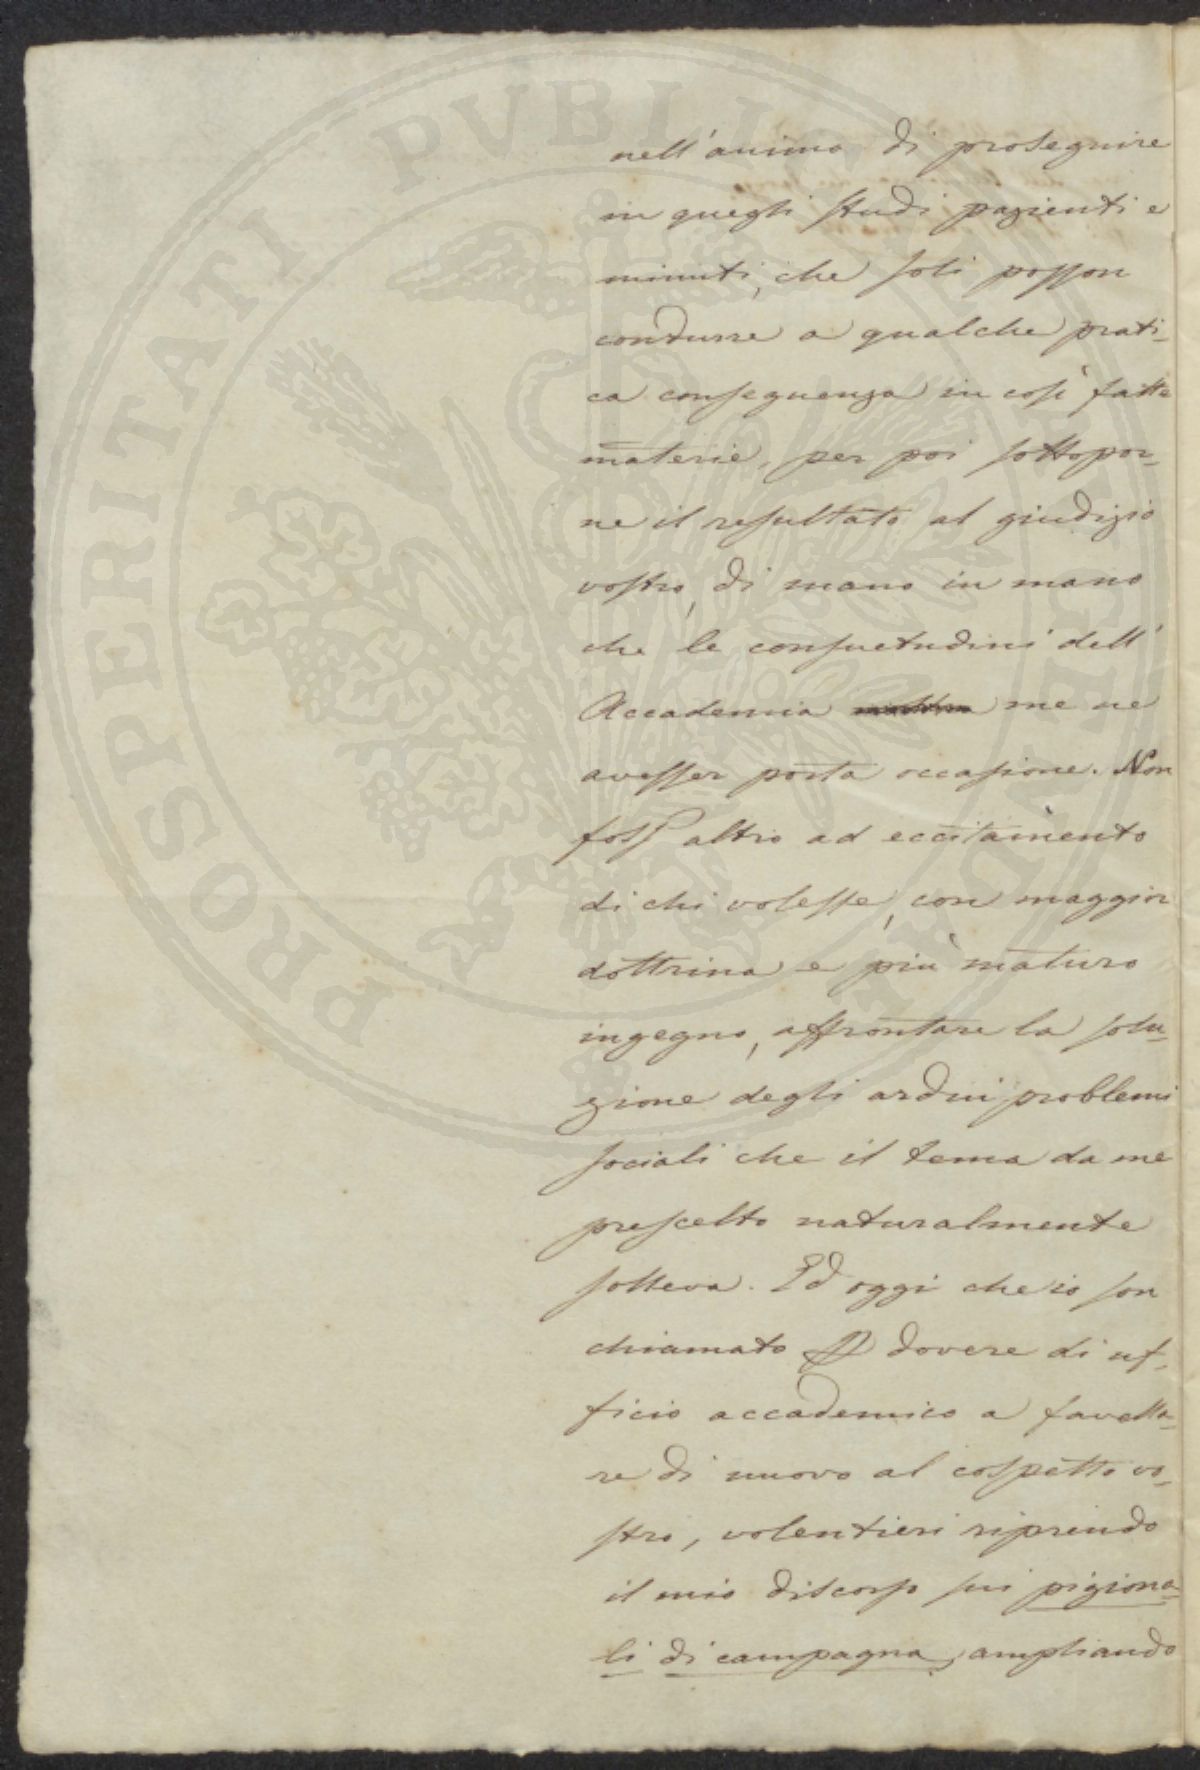 nell'animo di proseguire
in quegli studi pazienti e
minuti, che soli posson
condurre a qualche prati-
ca conseguenza in così fatte
materie, per poi sottopor-
ne il resultato al giudizio
vostro, di mano in mano
che le consuetudini dell'
Accademia me ne
avesser porta occasione. Non
foss'altro ad eccitamento
di chi volesse, con maggior
dottrina e più maturo
ingegno, affrontare la solu-
zione degli ardui problemi
sociali che il tema da me
prescelto naturalmente
solleva. Ed oggi che io son
chiamato dovere di uf-
ficio accademico a favella-
re di nuovo al cospetto vo-
stro, volentieri riprendo
il mio discorso sui pigiona-
li di campagna, ampliando
PROSPERITATI PVBLICAE AVGENDAE